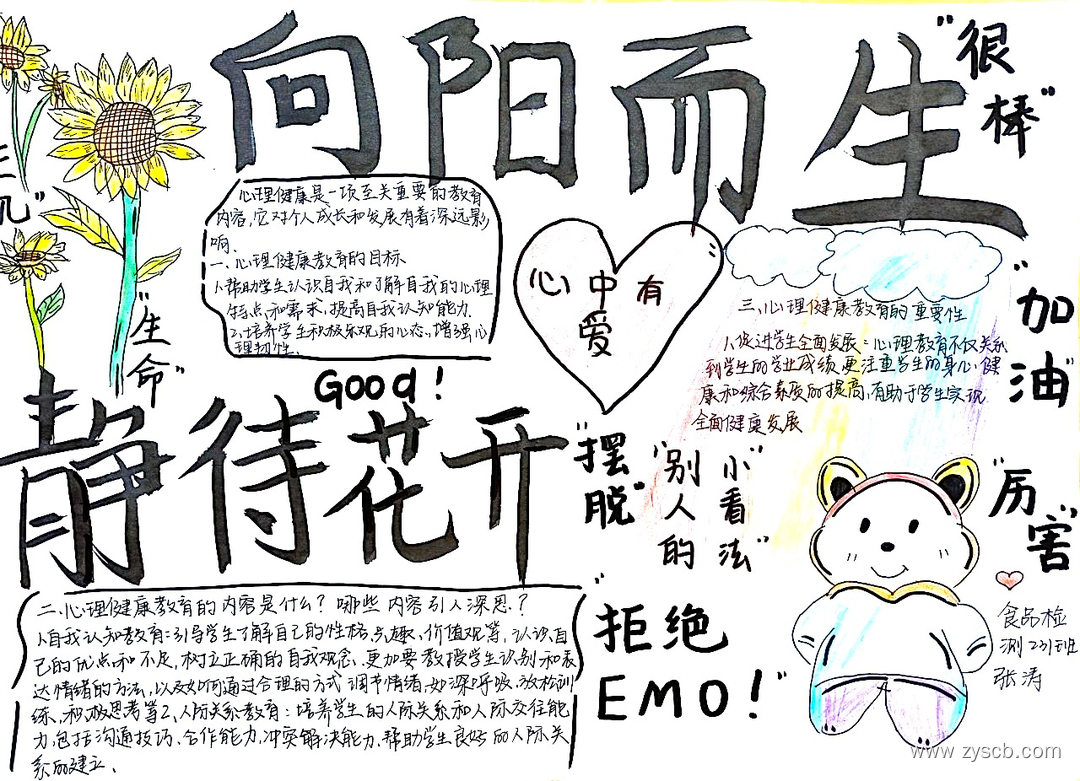 向阳而生
"很棒"
心理健康是一项至关重要的教育
内容,它对个人成长和发展有着深远影
响、
一、心理健康教育的目标
1、帮助学生认识自我和了解自我的心理
特点和需求,提高自我认知能力.
2、培养学生积极乐观的心态、增强心
理韧性、
心中有
爱
三、心理健康教育的重要性
1、促进学生全面发展:心理教育不仅关系
到学生的学业成绩,更注重学生的身心健
康和综合素质的提高,有助于学生实现
全面健康发展
"加油"
"生命"
Good!
静待花开
"摆脱"
"别人的
小看法"
"厉害"
二、心理健康教育的内容是什么?哪些内容引人深思.?
1、自我认知教育:引导学生了解自己的性格、兴趣、价值观等,认识自
己的优点和不足,树立正确的自我观念、更加要教授学生识别和表
达情绪的方法,以及如何通过合理的方式调节情绪,如深呼吸、放松训
练、积极思考等2、人际关系教育:培养学生的人际关系和人际交往能
力,包括沟通技巧、合作能力、冲突解决能力.帮助学生良好的人际关
系的建立、
"拒绝
EMO!"
食品检
测231班
张涛
www.zyscb.com